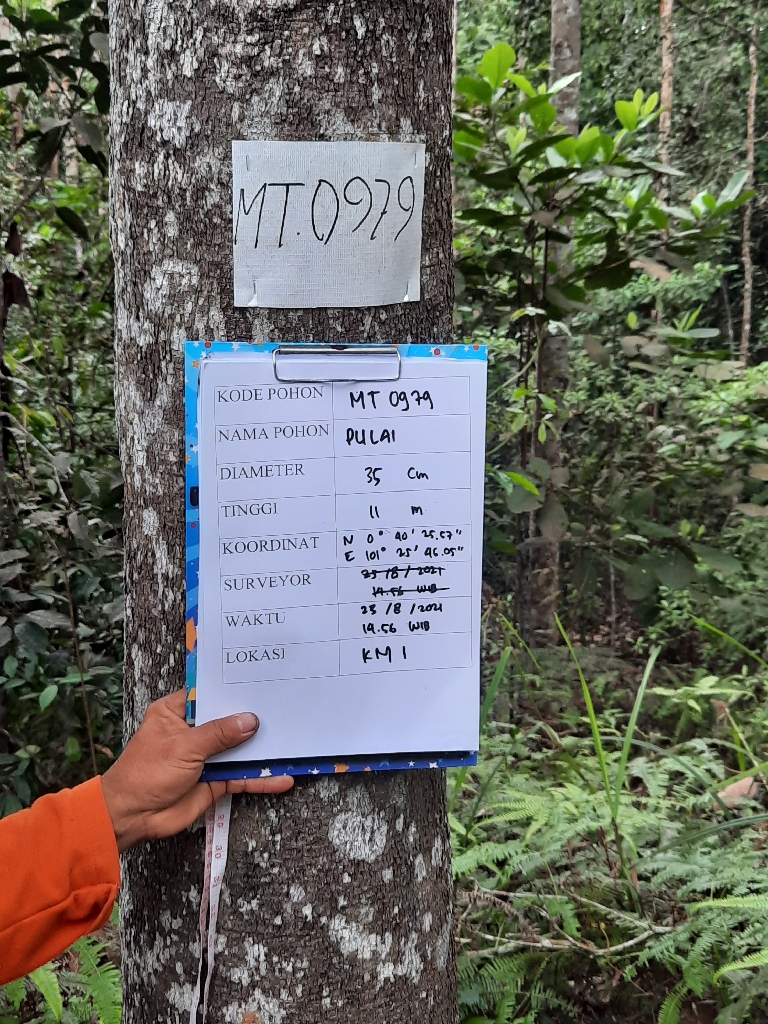 MT.0979
KODE POHON MT 0979
NAMA POHON PULAI
DIAMETER 35 Cm
TINGGI 11 m
KOORDINAT N 0° 40' 25.57"
E 101° 25' 46.05"
SURVEYOR 23/8/2021
14.56 WIB
WAKTU 23/8/2021
14.56 WIB
LOKASI KM 1
29 30 31